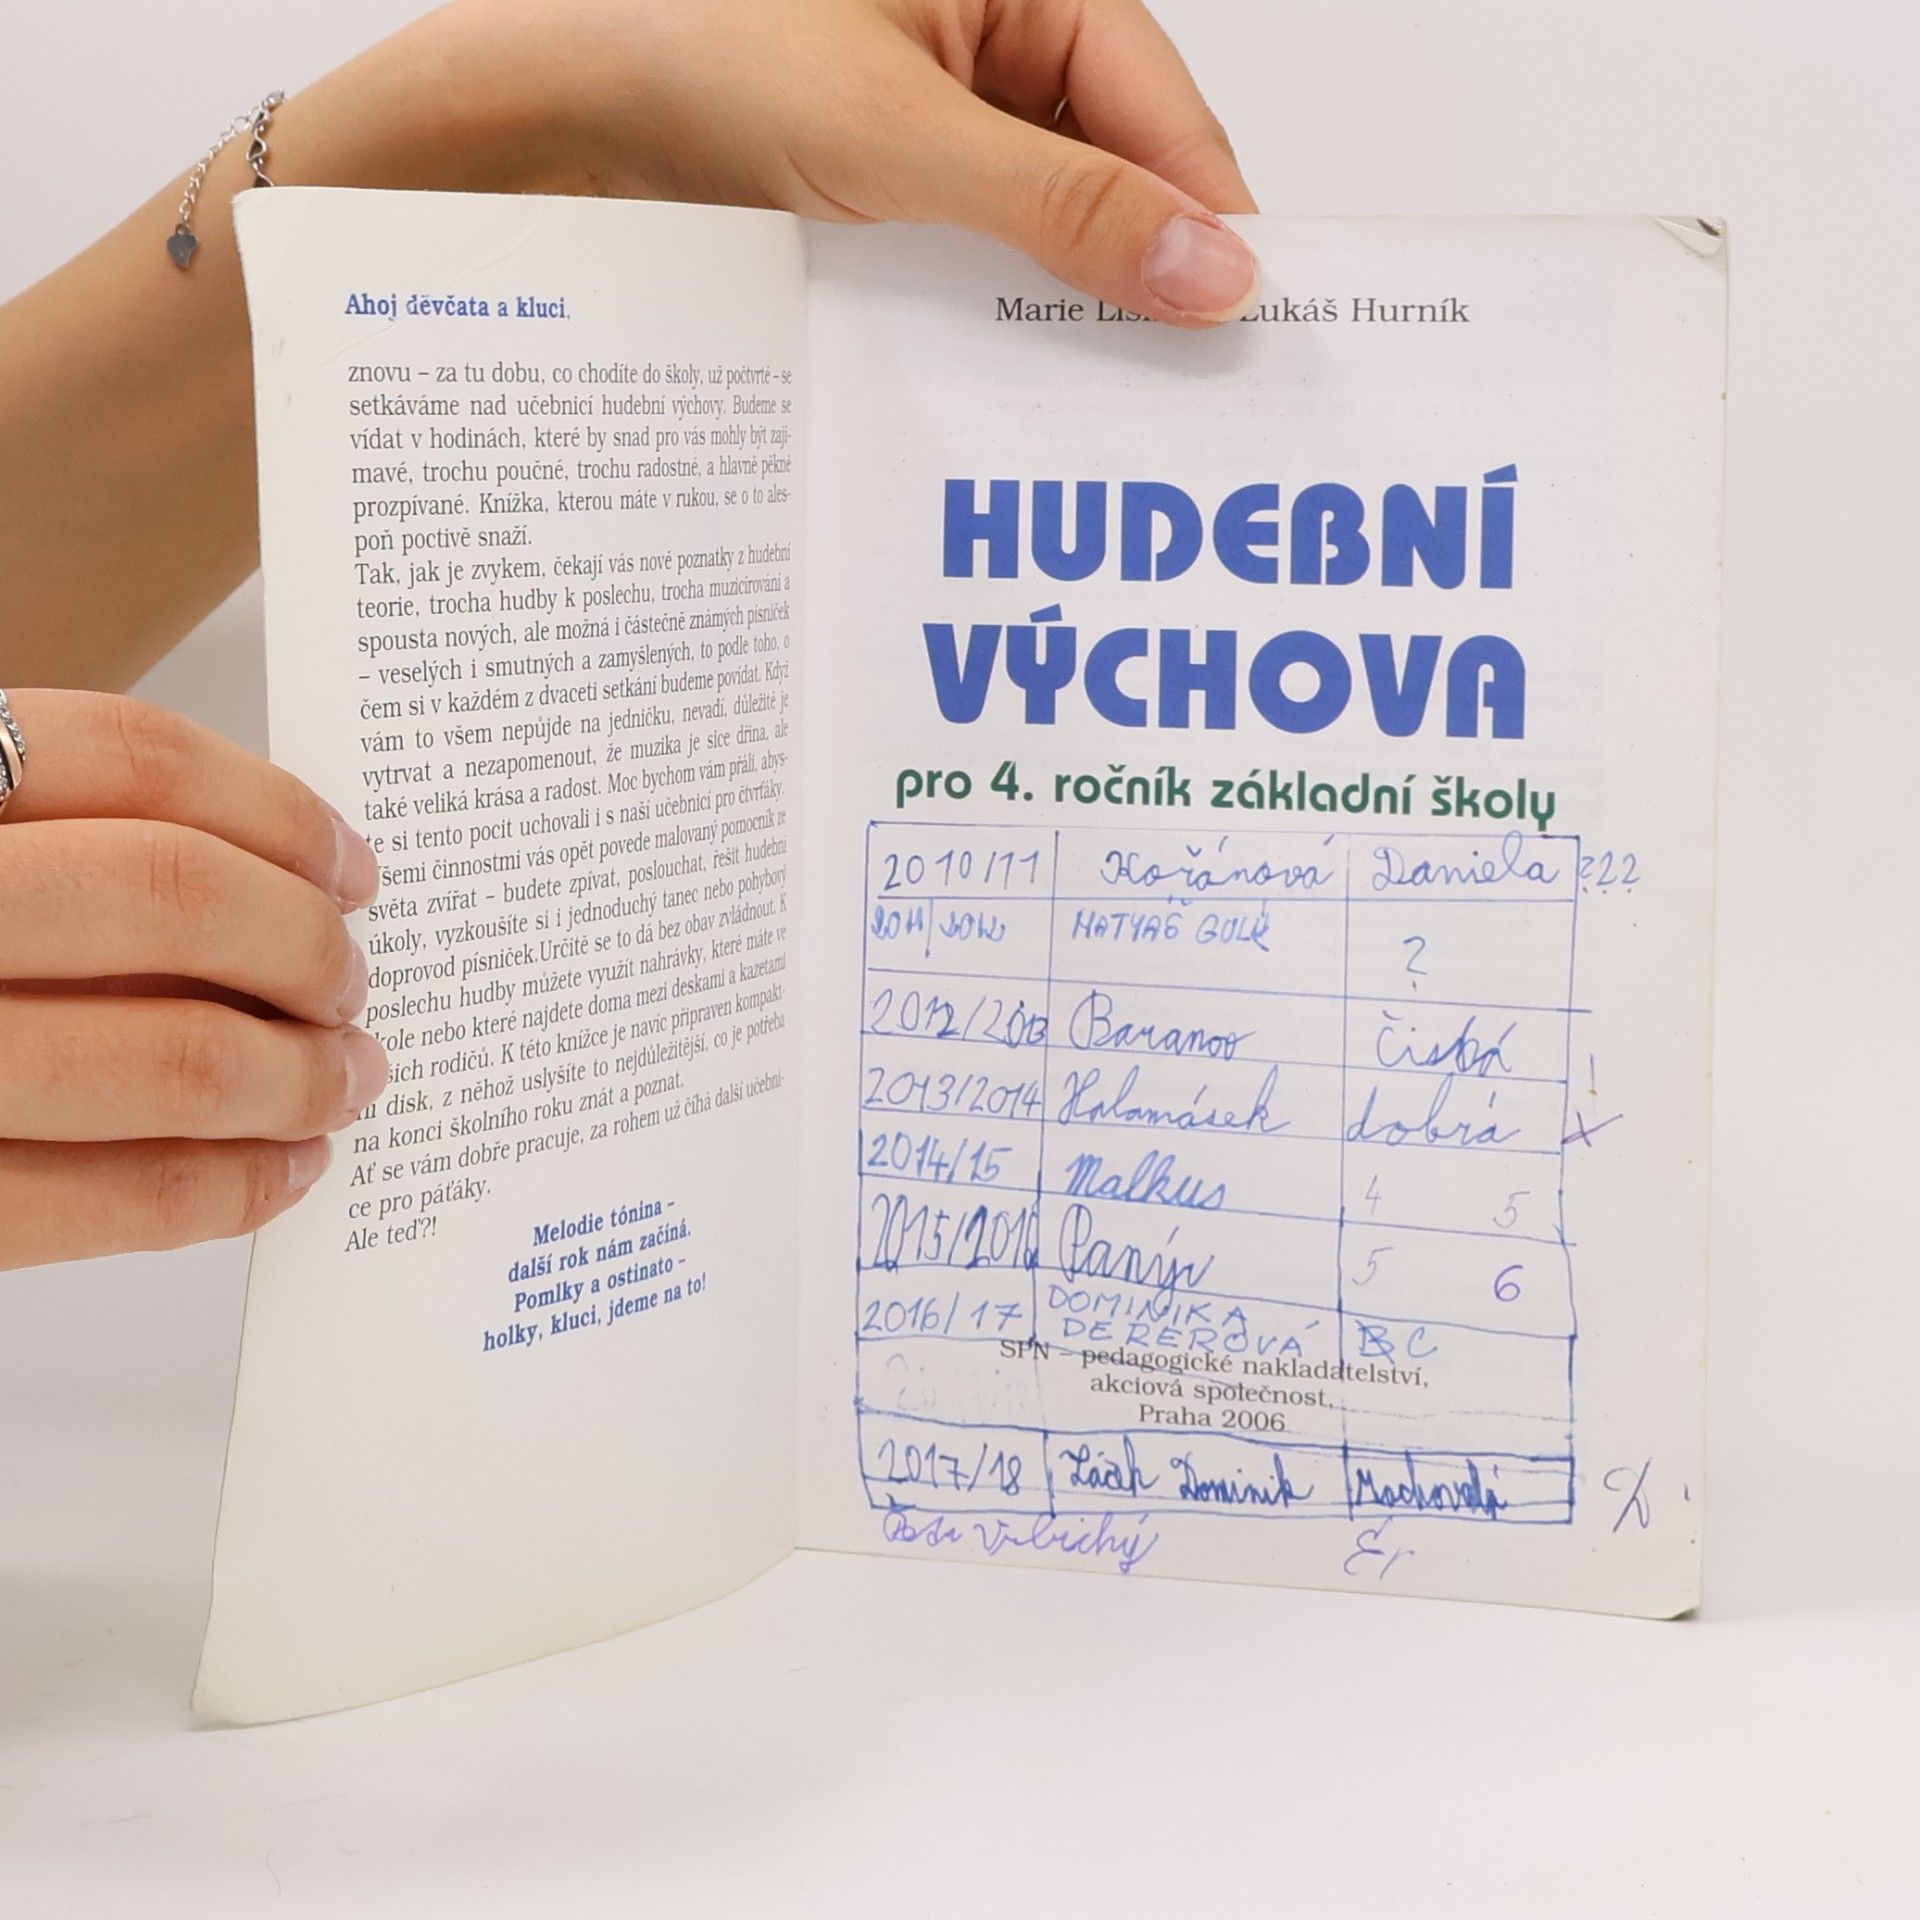 Ahoj děvčata a kluci,
znovu – za tu dobu, co chodíte do školy, už počtvrté – se
setkáváme nad učebnicí hudební výchovy. Budeme se
vídat v hodinách, které by snad pro vás mohly být zají-
mavé, trochu poučné, trochu radostné, a hlavně pěkně
prozpívané. Knížka, kterou máte v rukou, se o to ales-
poň poctivě snaží.
Tak, jak je zvykem, čekají vás nové poznatky z hudební
teorie, trocha hudby k poslechu, trocha muzicírování a
spousta nových, ale možná i částečně známých písniček
– veselých i smutných a zamyšlených, to podle toho, o
čem si v každém z dvaceti setkání budeme povídat. Když
vám to všem nepůjde na jedničku, nevadí, důležité je
vytrvat a nezapomenout, že muzika je sice dřina, ale
také veliká krása a radost. Moc bychom vám přáli, abys-
te si tento pocit uchovali i s naší učebnicí pro čtvrťáky.
všemi činnostmi vás opět povede malovaný pomocník ze
světa zvířat – budete zpívat, poslouchat, řešit hudební
úkoly, vyzkoušíte si i jednoduchý tanec nebo pohybový
doprovod písniček.Určitě se to dá bez obav zvládnout. K
poslechu hudby můžete využít nahrávky, které máte ve
škole nebo které najdete doma mezi deskami a kazetami
šich rodičů. K této knížce je navíc připraven kompakt-
ní disk, z něhož uslyšíte to nejdůležitější, co je potřeba
na konci školního roku znát a poznat.
Ať se vám dobře pracuje, za rohem už číhá další učebni-
ce pro páťáky.
Ale teď?!
Melodie tónina –
další rok nám začíná.
Pomlky a ostinato –
holky, kluci, jdeme na to!
Marie Lukáš Hurník
HUDEBNÍ
VÝCHOVA
pro 4. ročník základní školy
2010/11 Kořánová Daniela ???
2011/2012 MATYÁŠ ?
2012/2013 Baranov Čistá
2013/2014 Halamásek dobrá
2014/15 Malkus 4 5
2015/2016 Panýr 5 6
2016/17 DOMINIKA
DEREROVÁ B C
SPN – pedagogické nakladatelství,
akciová společnost,
Praha 2006
2017/18 Dominik